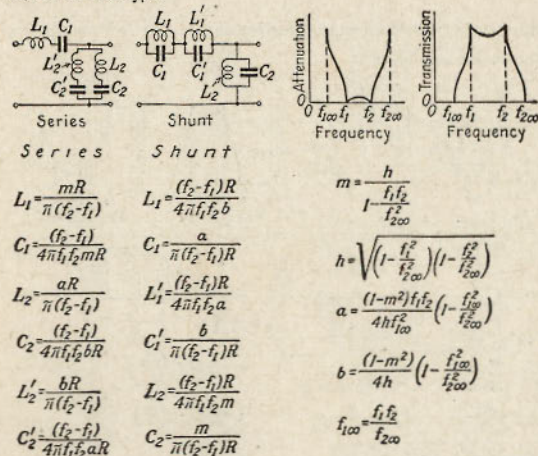 L₁ C₁ L₂' L₂ C₂' C₂
L₁ L₁' C₁ C₁' L₂ C₂
Series Shunt
Attenuation
0 f₁∞ f₁ f₂ f₂∞
Frequency
Transmission
0 f₁∞ f₁ f₂ f₂∞
Frequency
Series Shunt
L₁=mR/π(f₂-f₁)
C₁=(f₂-f₁)/4πf₁f₂mR
L₂=aR/π(f₂-f₁)
C₂=(f₂-f₁)/4πf₁f₂bR
L₂'=bR/π(f₂-f₁)
C₂'=(f₂-f₁)/4πf₁f₂aR
L₁=(f₂-f₁)R/4πf₁f₂b
C₁=a/π(f₂-f₁)R
L₁'=(f₂-f₁)R/4πf₁f₂a
C₁'=b/π(f₂-f₁)R
L₂=(f₂-f₁)R/4πf₁f₂m
C₂=m/π(f₂-f₁)R
m=h/(1-f₁f₂/f₂∞²)
h=√((1-f₁²/f₂∞²)(1-f₂²/f₂∞²))
a=(1-m²)f₁f₂/4hf₁∞²(1-f₁∞²/f₂∞²)
b=(1-m²)/4h(1-f₁∞²/f₂∞²)
f₁∞=f₁f₂/f₂∞